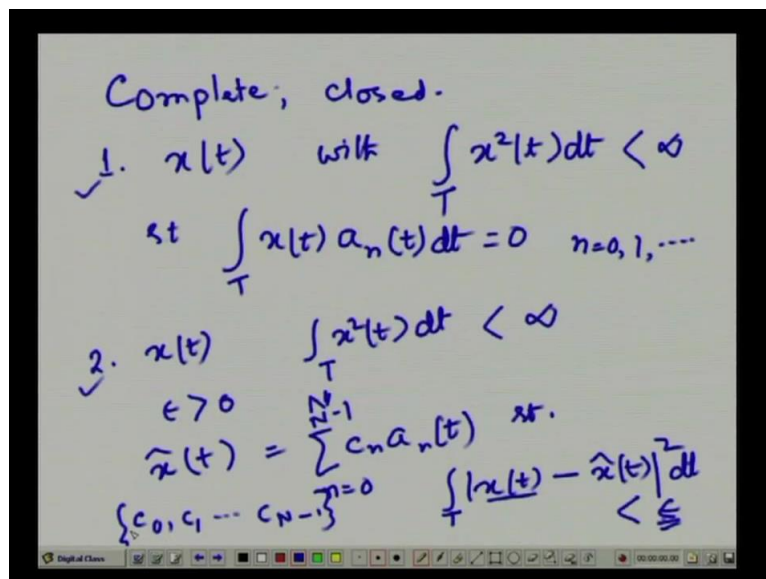 Complete, closed.
1. x(t) with ∫_T x²(t)dt < ∞
st ∫_T x(t) a_n(t)dt = 0 n=0, 1, ----
2. x(t) ∫_T x²(t)dt < ∞
ϵ > 0
x̂(t) = ∑_{n=0}^{N-1} c_n a_n(t) st.
{c_0, c_1 --- c_{N-1}} ∫_T |x(t) - x̂(t)|² dt
< ϵ
Digital Class 00:00:00.00